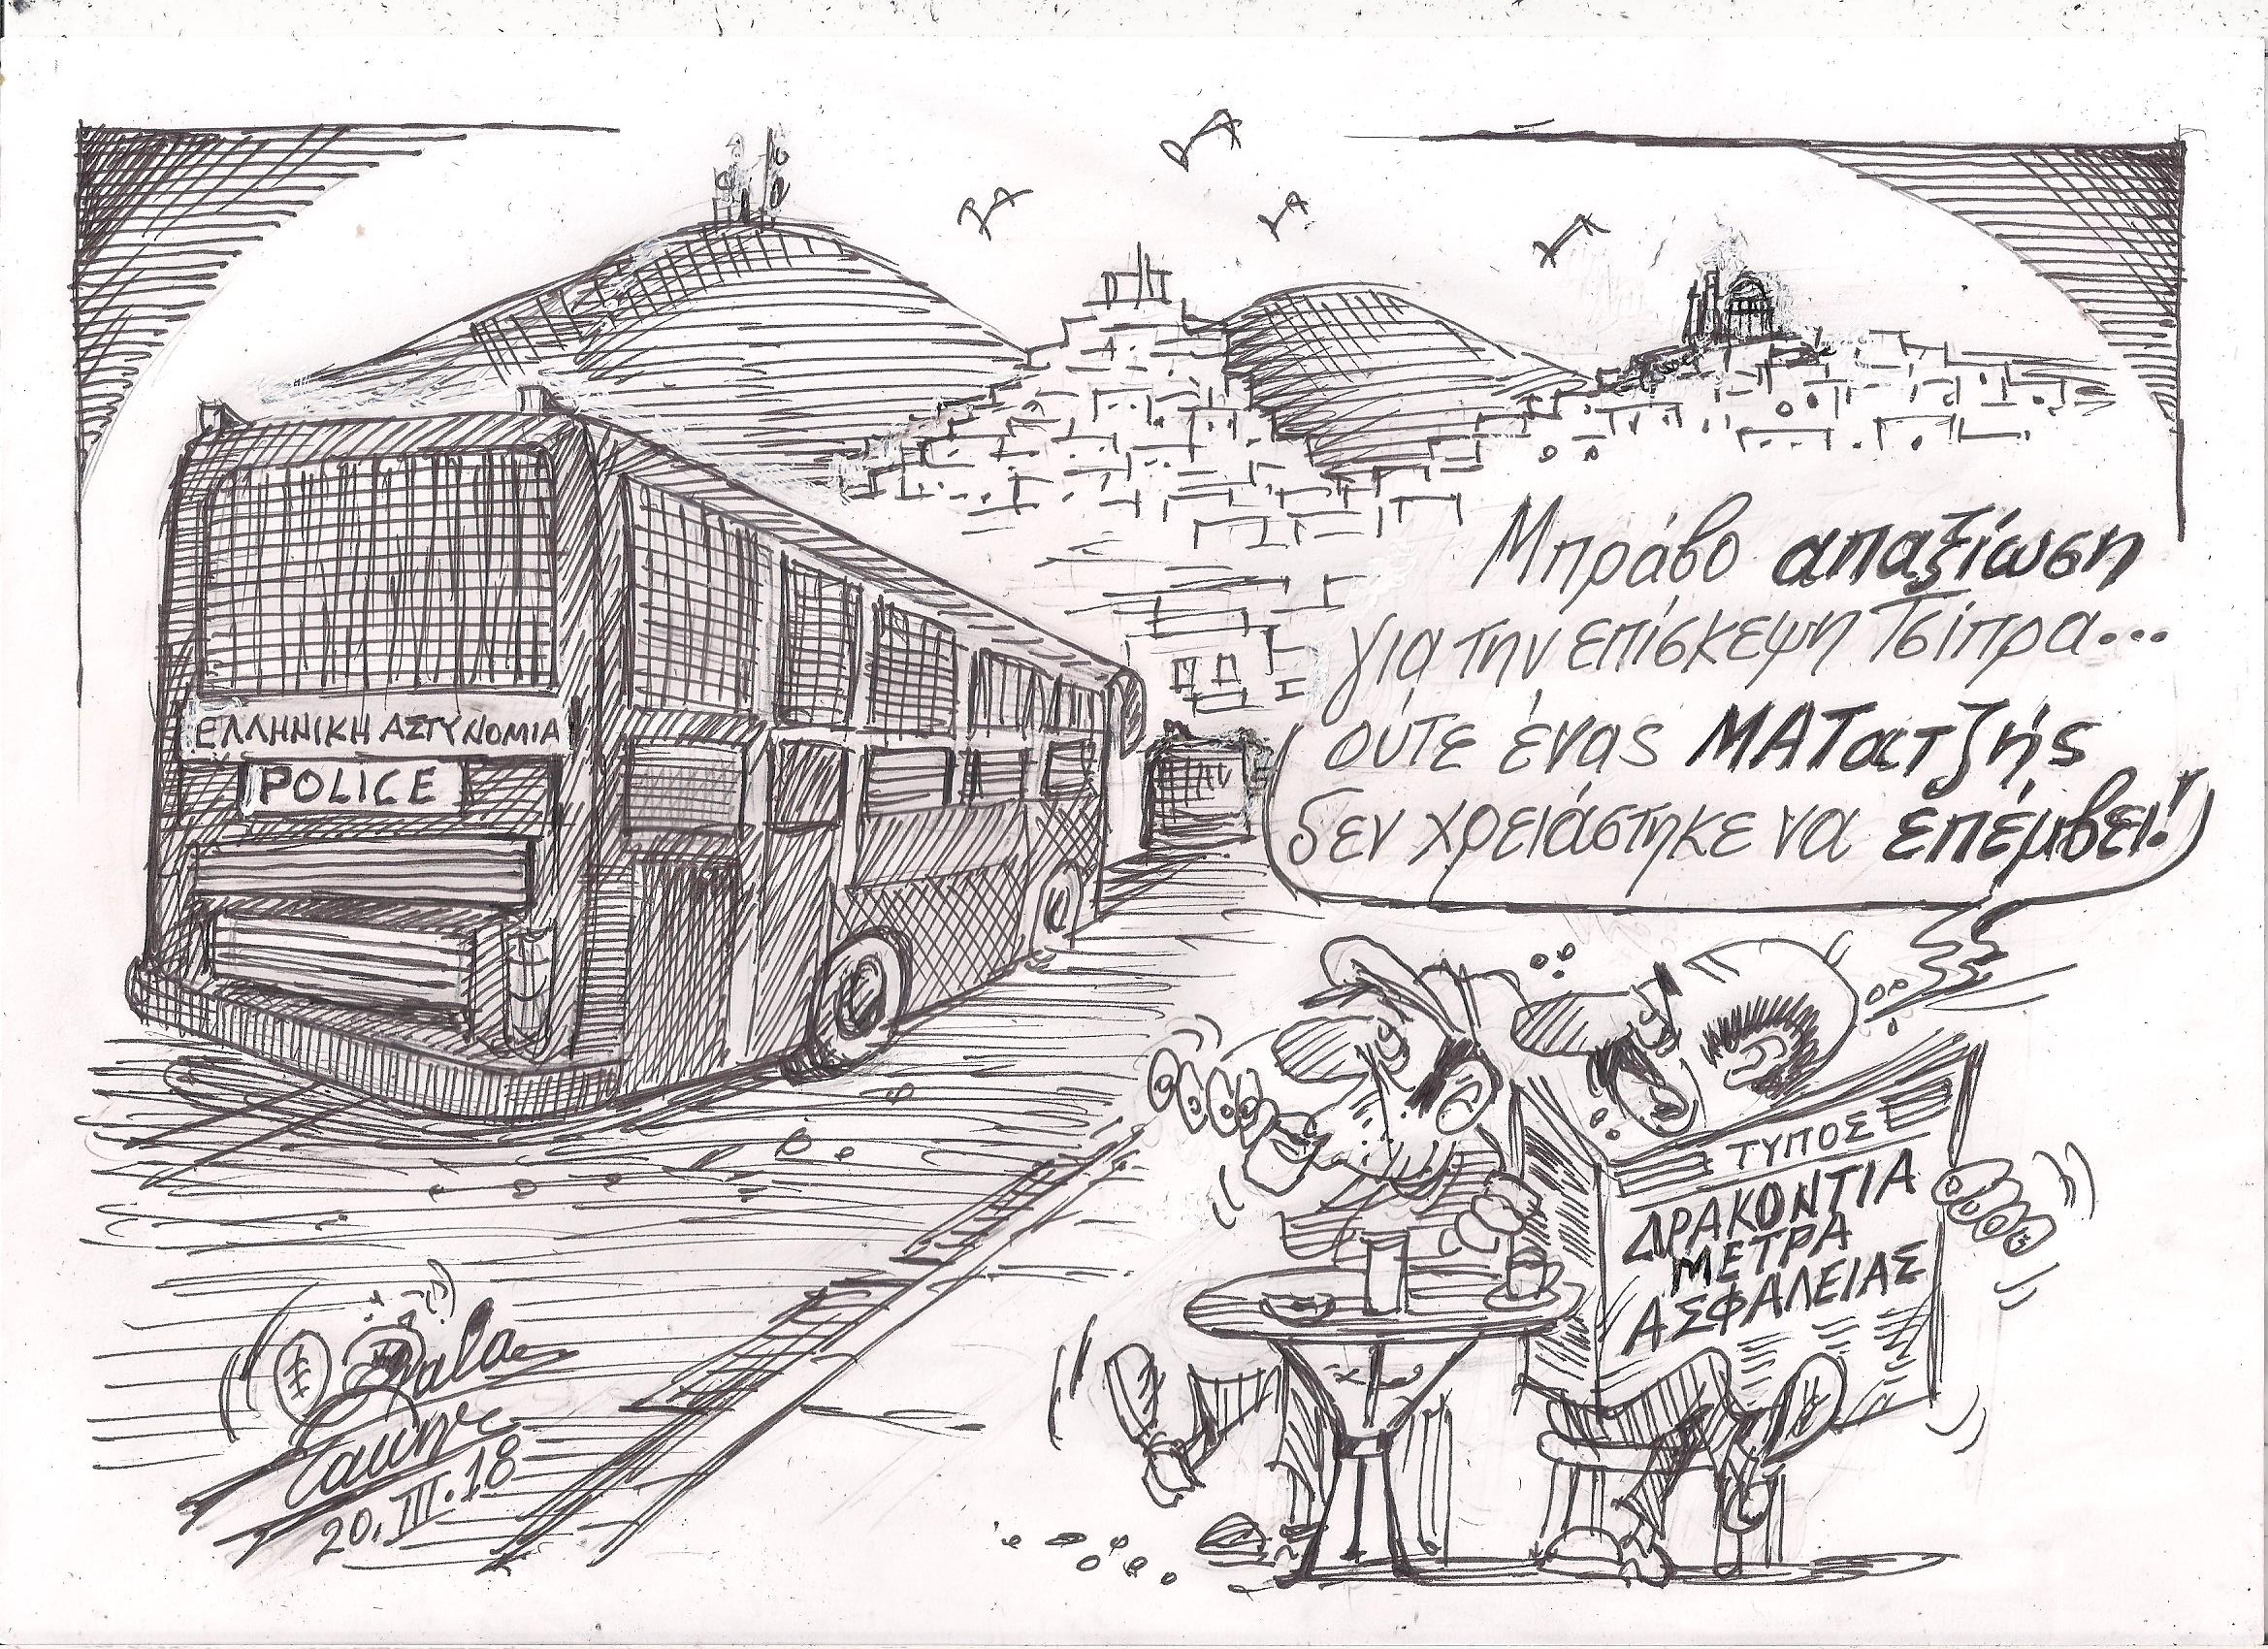 Μπράβο απαξίωση
για την επίσκεψη Τσίπρα...
ούτε ένας ΜΑΤατζής
δεν χρειάστηκε να επέμβει!
ΕΛΛΗΝΙΚΗ ΑΣΤΥΝΟΜΙΑ
POLICE
ΤΥΠΟΣ
ΔΡΑΚΟΝΤΙΑ
ΜΕΤΡΑ
ΑΣΦΑΛΕΙΑΣ
20.III.18